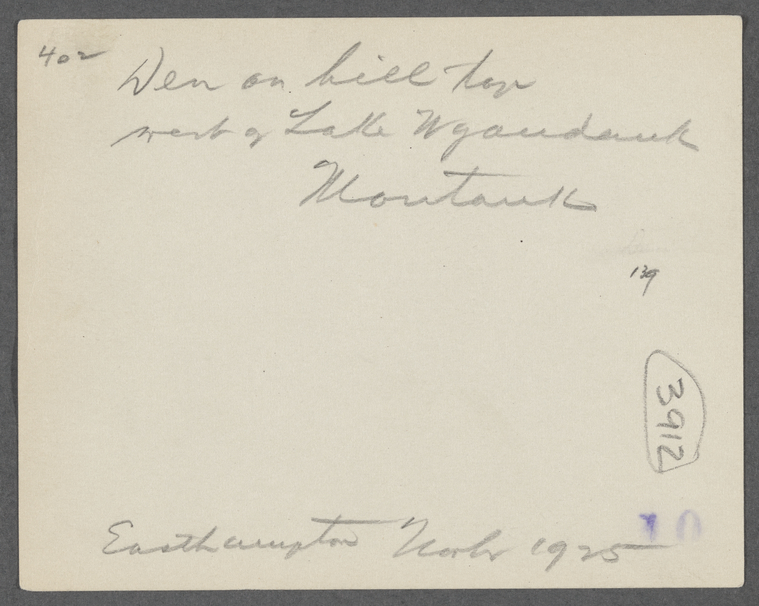 402
Den on hill top
west of Lake Wyandank
Montauk
139
3912
10
Easthampton Novbr 1925